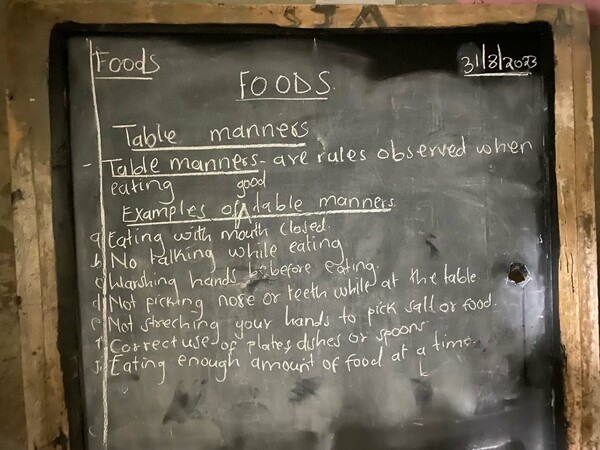 S I A
Foods
31/8/2023
FOODS.
Table manners
- Table manners- are rules observed when
eating
good
Examples of table manners
a, Eating with mouth closed.
b, No talking while eating
c, Warshing hands before eating.
d, Not picking nose or teeth while at the table
e, Not streching your hands to pick salt or food.
f, Correct use of plates, dishes or spoons
g, Eating enough amount of food at a time.